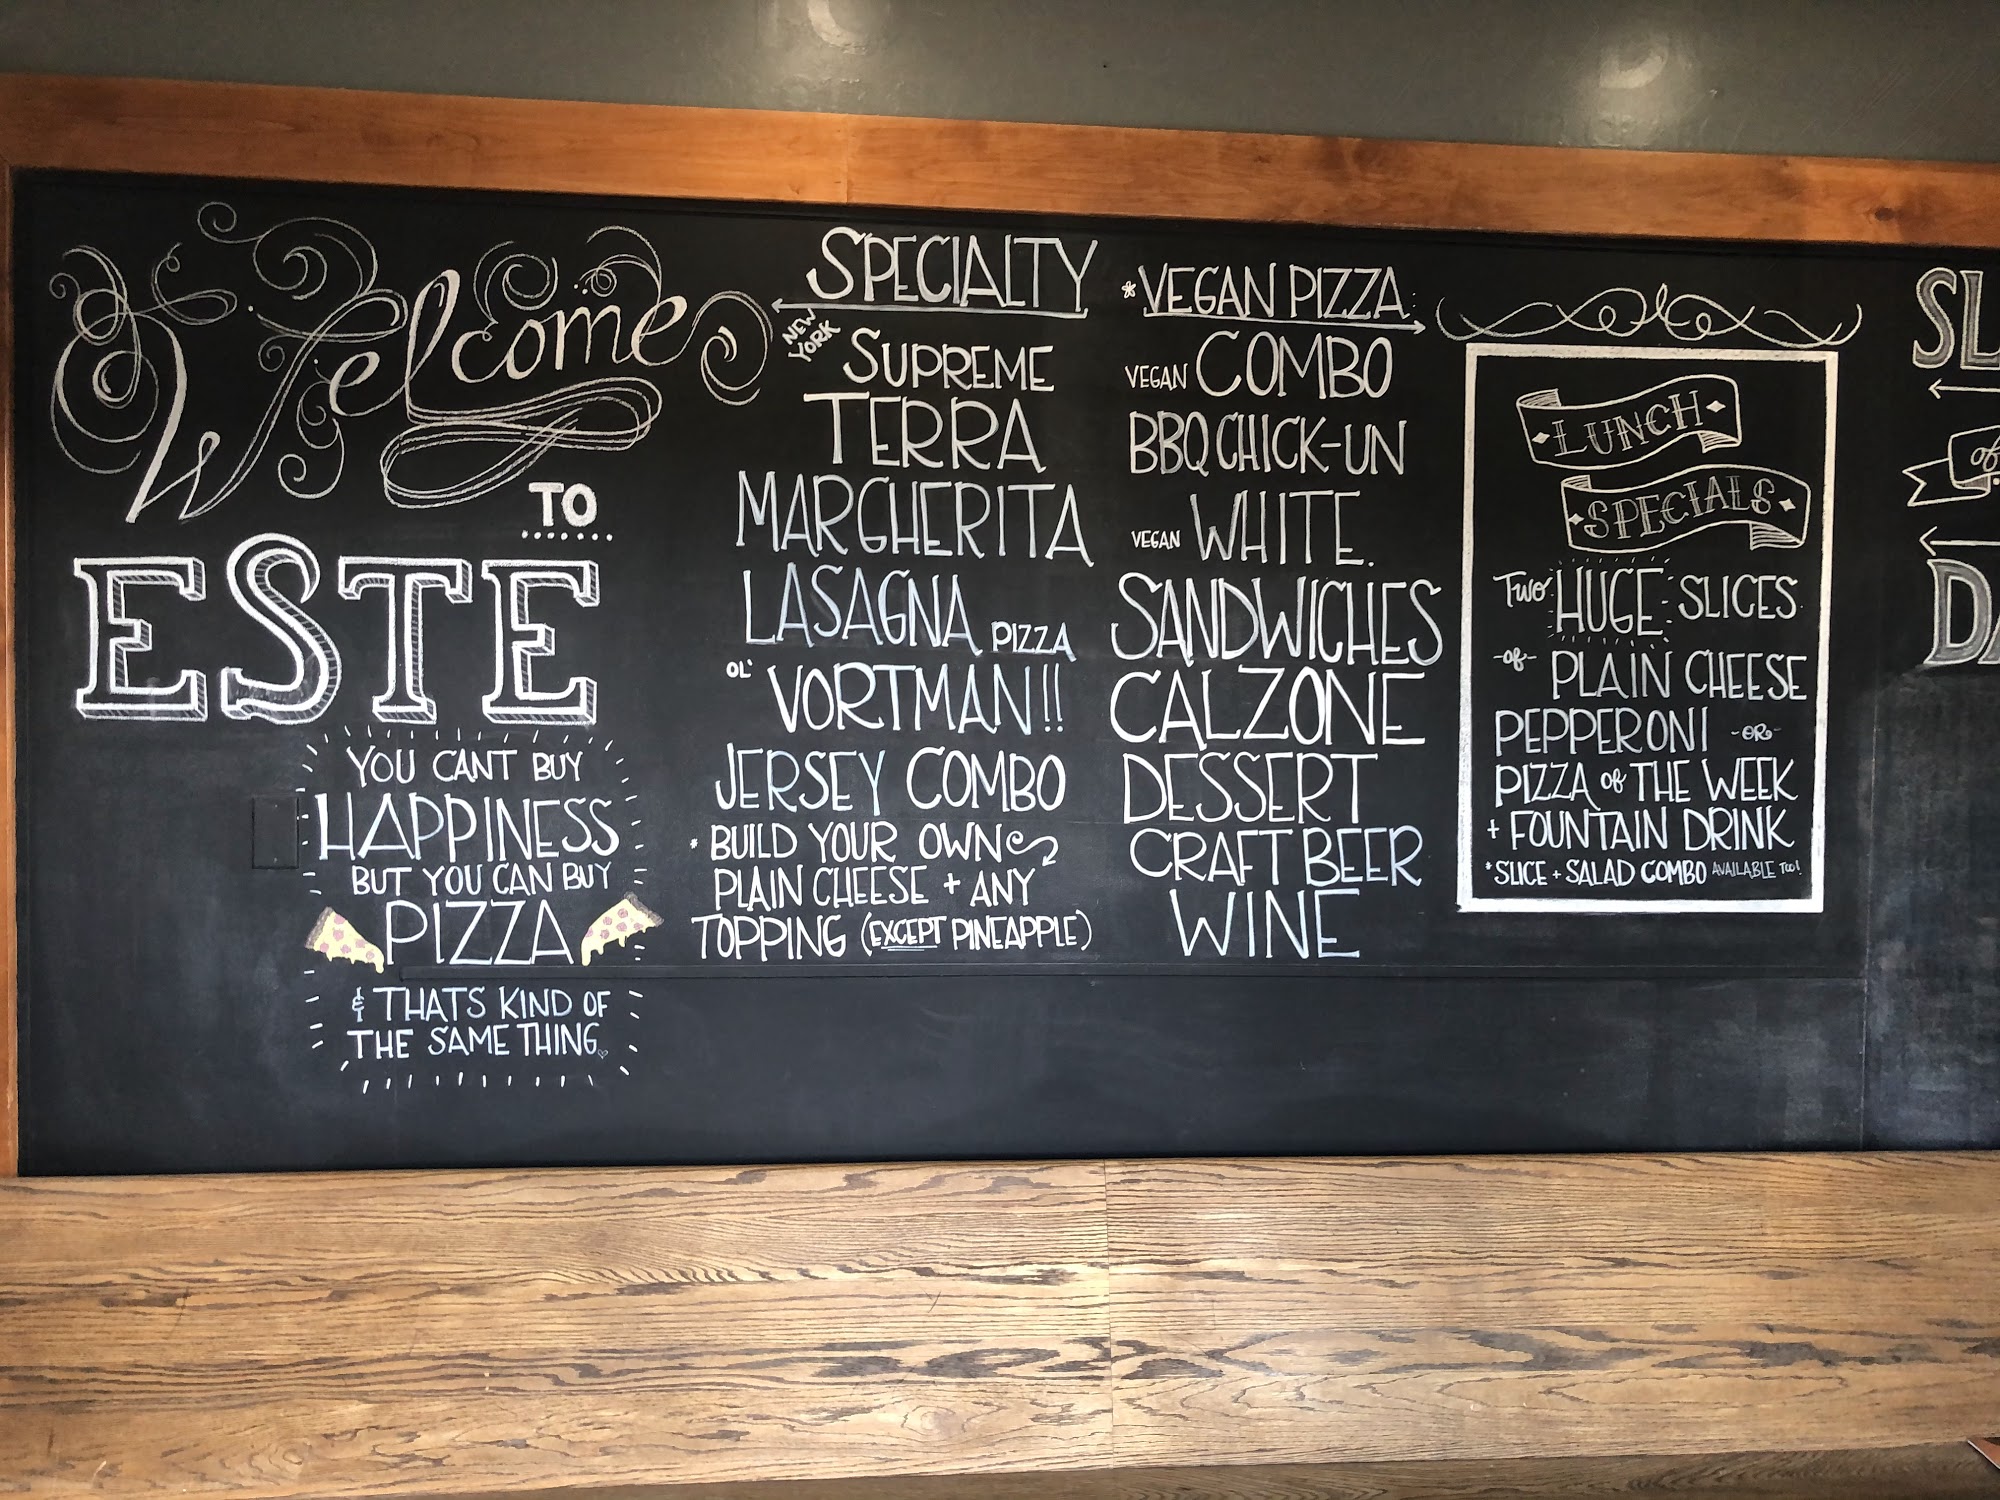 Welcome
TO
ESTE
YOU CANT BUY
HAPPINESS
BUT YOU CAN BUY
PIZZA
& THATS KIND OF
THE SAME THING
SPECIALTY
NEW YORK SUPREME
TERRA
MARGHERITA
LASAGNA PIZZA
OL' VORTMAN!!
JERSEY COMBO
* BUILD YOUR OWN
PLAIN CHEESE + ANY
TOPPING (EXCEPT PINEAPPLE)
*VEGAN PIZZA:
VEGAN COMBO
BBQ CHICK-UN
VEGAN WHITE.
SANDWICHES
CALZONE
DESSERT
CRAFT BEER
WINE
LUNCH
SPECIALS
TWO HUGE SLICES
-of- PLAIN CHEESE
PEPPERONI -OR-
PIZZA of THE WEEK
+ FOUNTAIN DRINK
*SLICE + SALAD COMBO AVAILABLE TOO!
SL
of
DA